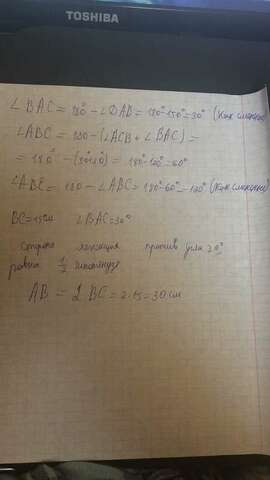 TOSHIBA
∠BAC = 180° - ∠DAB = 180° - 150° = 30° (как смежные)
∠ABC = 180 - (∠ACB + ∠BAC) =
= 180° - (90°+30°) = 180° - 120° = 60°
∠ABE = 180 - ∠ABC = 180° - 60° = 120° (Как смежные)
BC = 15см ∠BAC = 30°
сторона лежащая против угла 30°
равна 1/2 гипотенузе
AB = 2BC = 2·15 = 30 см